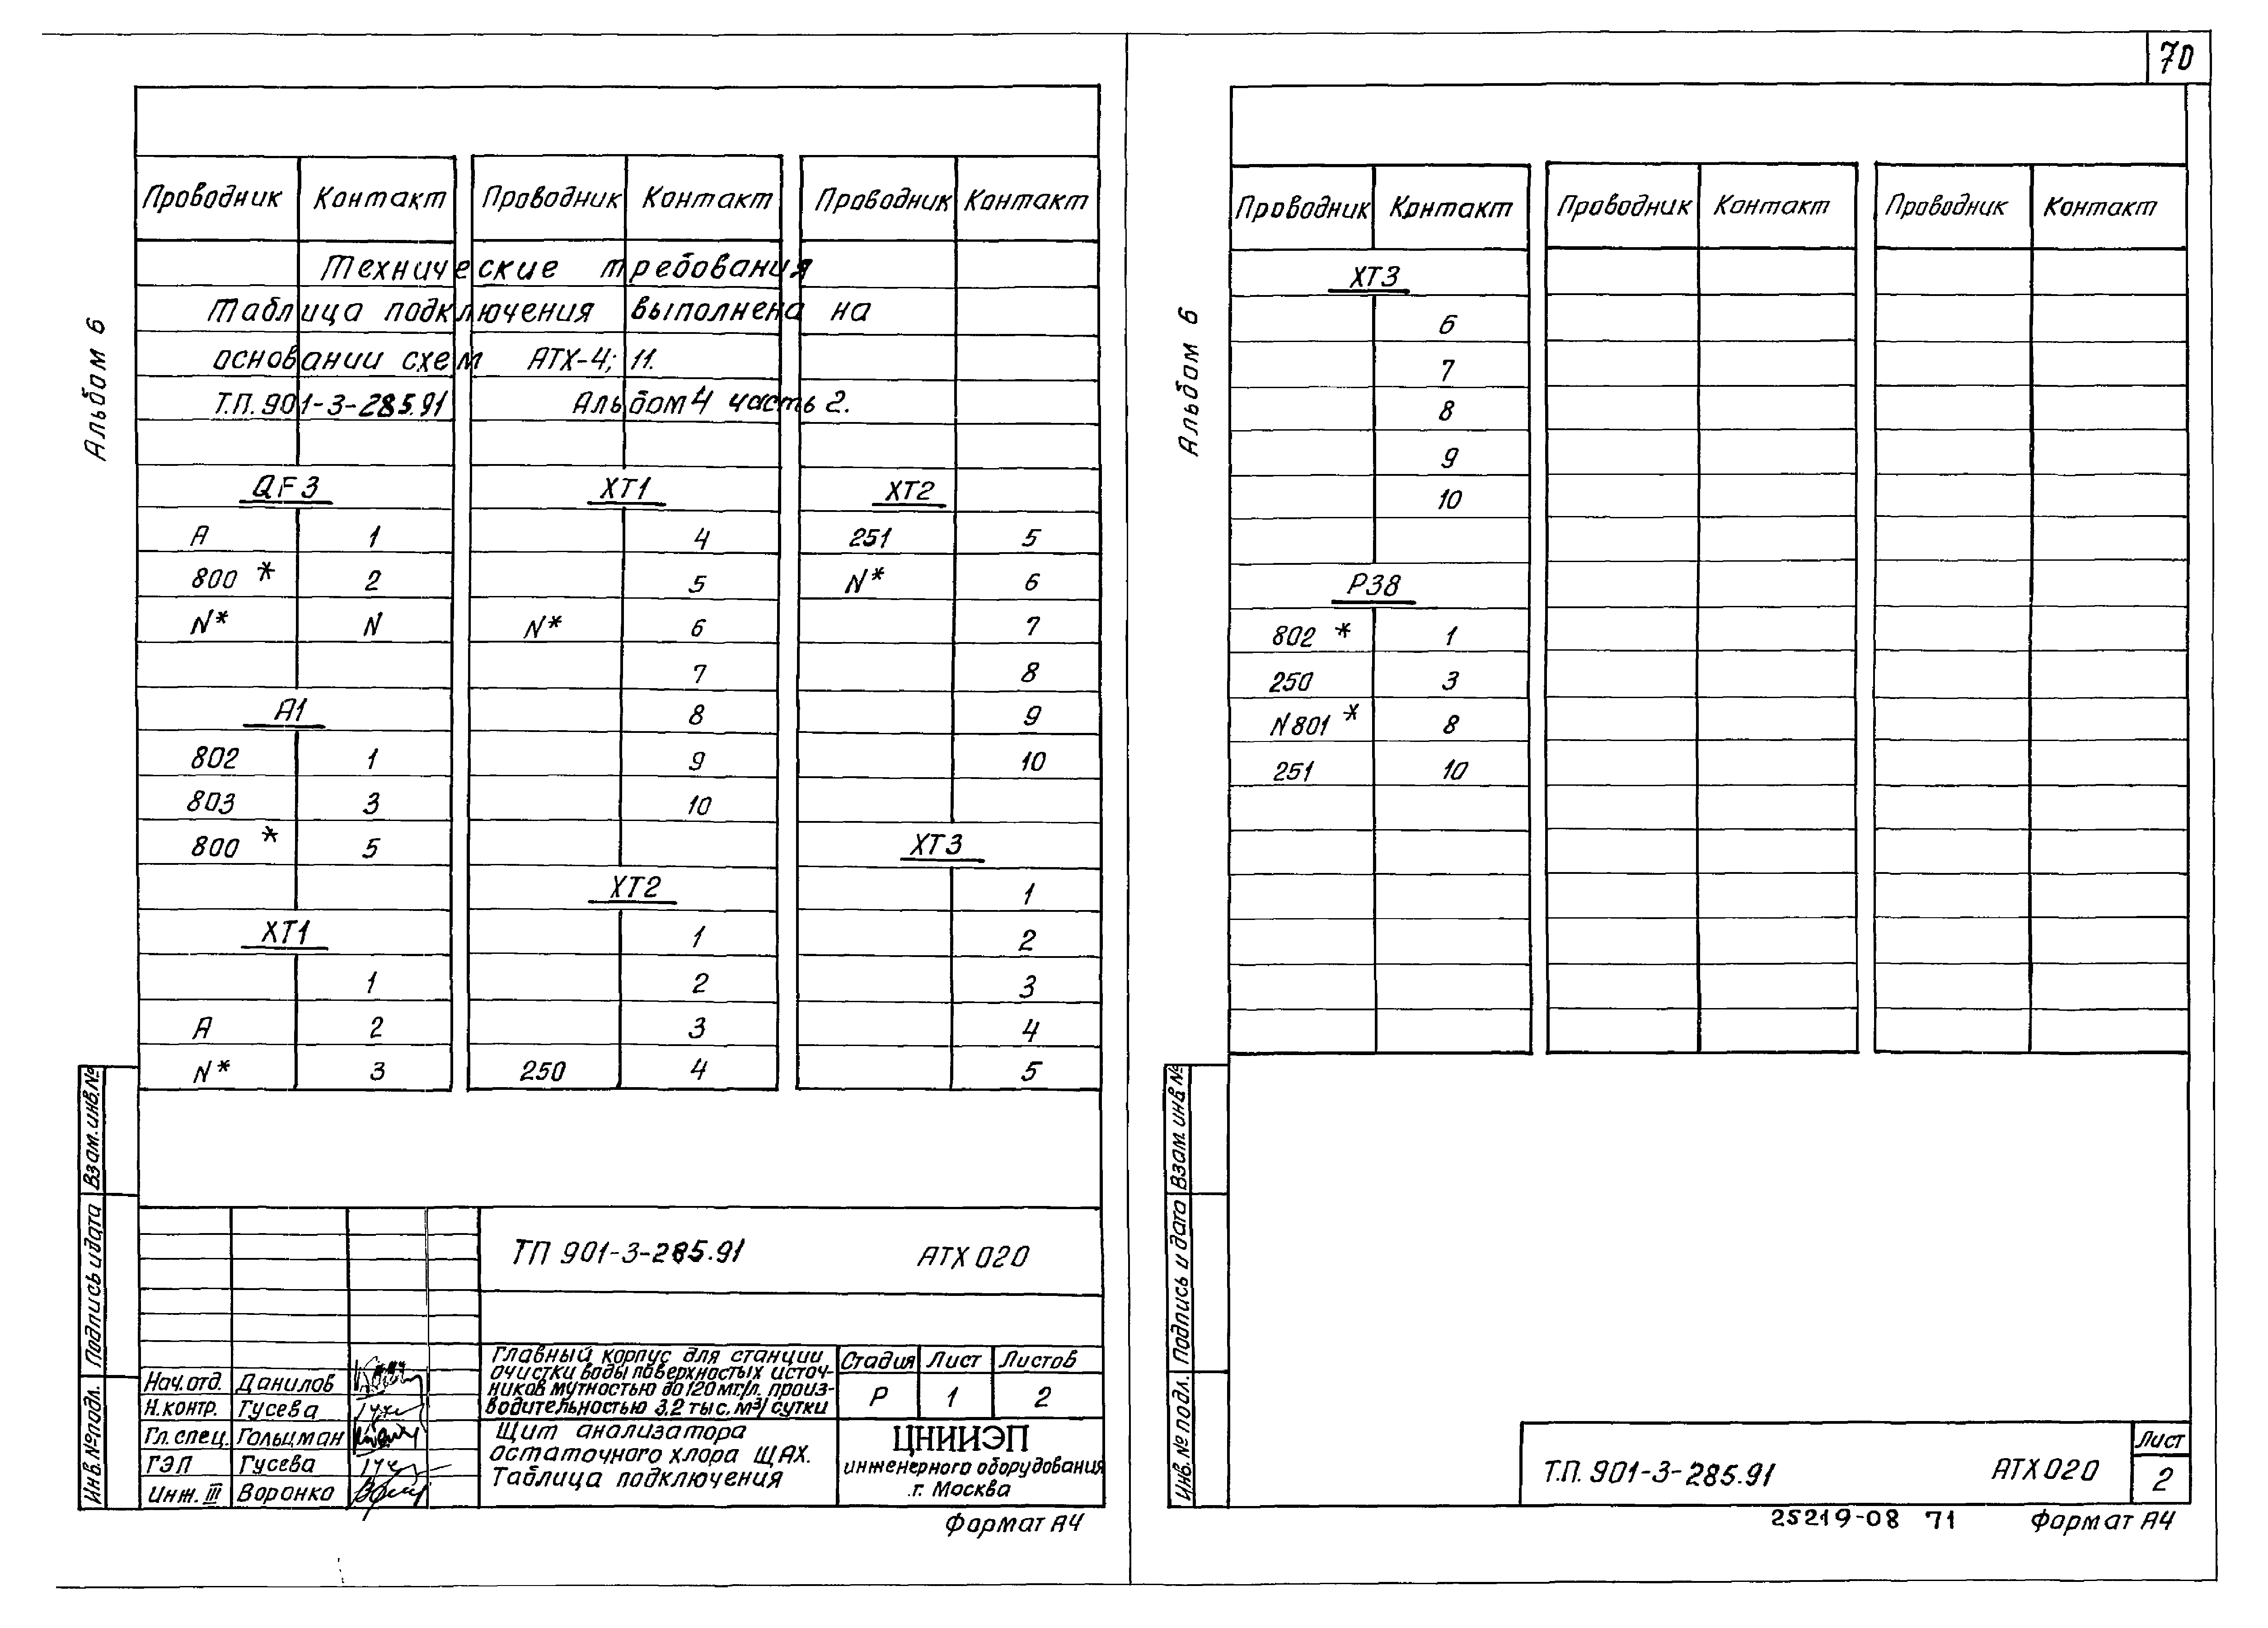 70
Альбом 6
Проводник Контакт Проводник Контакт Проводник Контакт
Технические требования
Таблица подключения выполнена на
основании схем АТХ-4; 11.
Т.П. 901-3-285.91 Альбом 4 часть 2.
QF3 XT1 XT2
А 1 4 251 5
800 * 2 5 N* 6
N* N N* 6 7
7 8
А1 8 9
802 1 9 10
803 3 10
800 * 5 XT3
XT2 1
XT1 1 2
1 2 3
А 2 3 4
N* 3 250 4 5
Взам. инв. №
Подпись и дата
Инв. № подл.
ТП 901-3-285.91 АТХ 020
Главный корпус для станции
очистки воды поверхностых источ-
ников мутностью до 120 мг/л. произ-
водительностью 3,2 тыс. м³/сутки
Стадия Лист Листов
Р 1 2
Нач. отд. Данилов
Н. контр. Гусева
Гл. спец. Гольцман
ГЭП Гусева
Инж. III Воронко
Щит анализатора
остаточного хлора ЩАХ.
Таблица подключения
ЦНИИЭП
инженерного оборудования
г. Москва
Формат А4
Альбом 6
Проводник Контакт Проводник Контакт Проводник Контакт
XT3
6
7
8
9
10
Р38
802 * 1
250 3
N801 * 8
251 10
Взам. инв №
Подпись и дата
Инв. № подл.
Т.П. 901-3-285.91 АТХ 020
Лист
2
25219-08 71 Формат А4